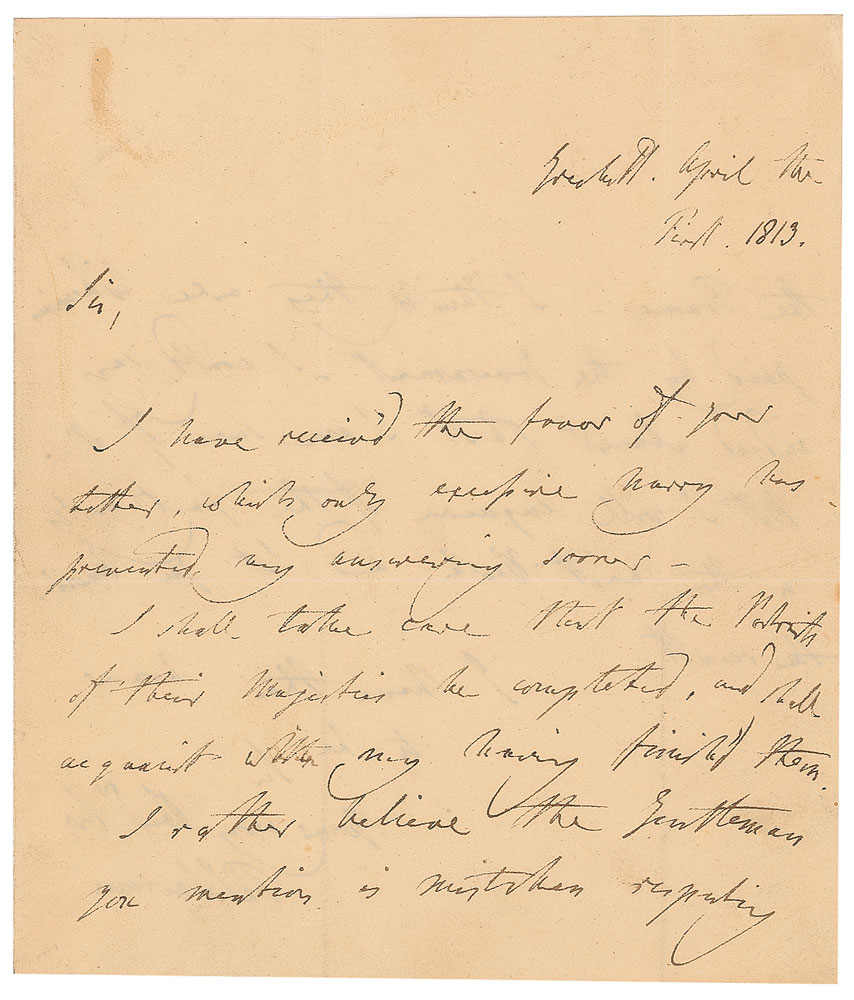 Greek St. April the
First. 1813.
Sir,
I have receiv'd the favor of your
letter, which only excessive hurry has
prevented my answering sooner -
I shall take care that the Portraits
of their Majesties be completed, and shall
acquaint with my having finish'd them.
I rather believe the Gentleman
you mention is mistaken respecting